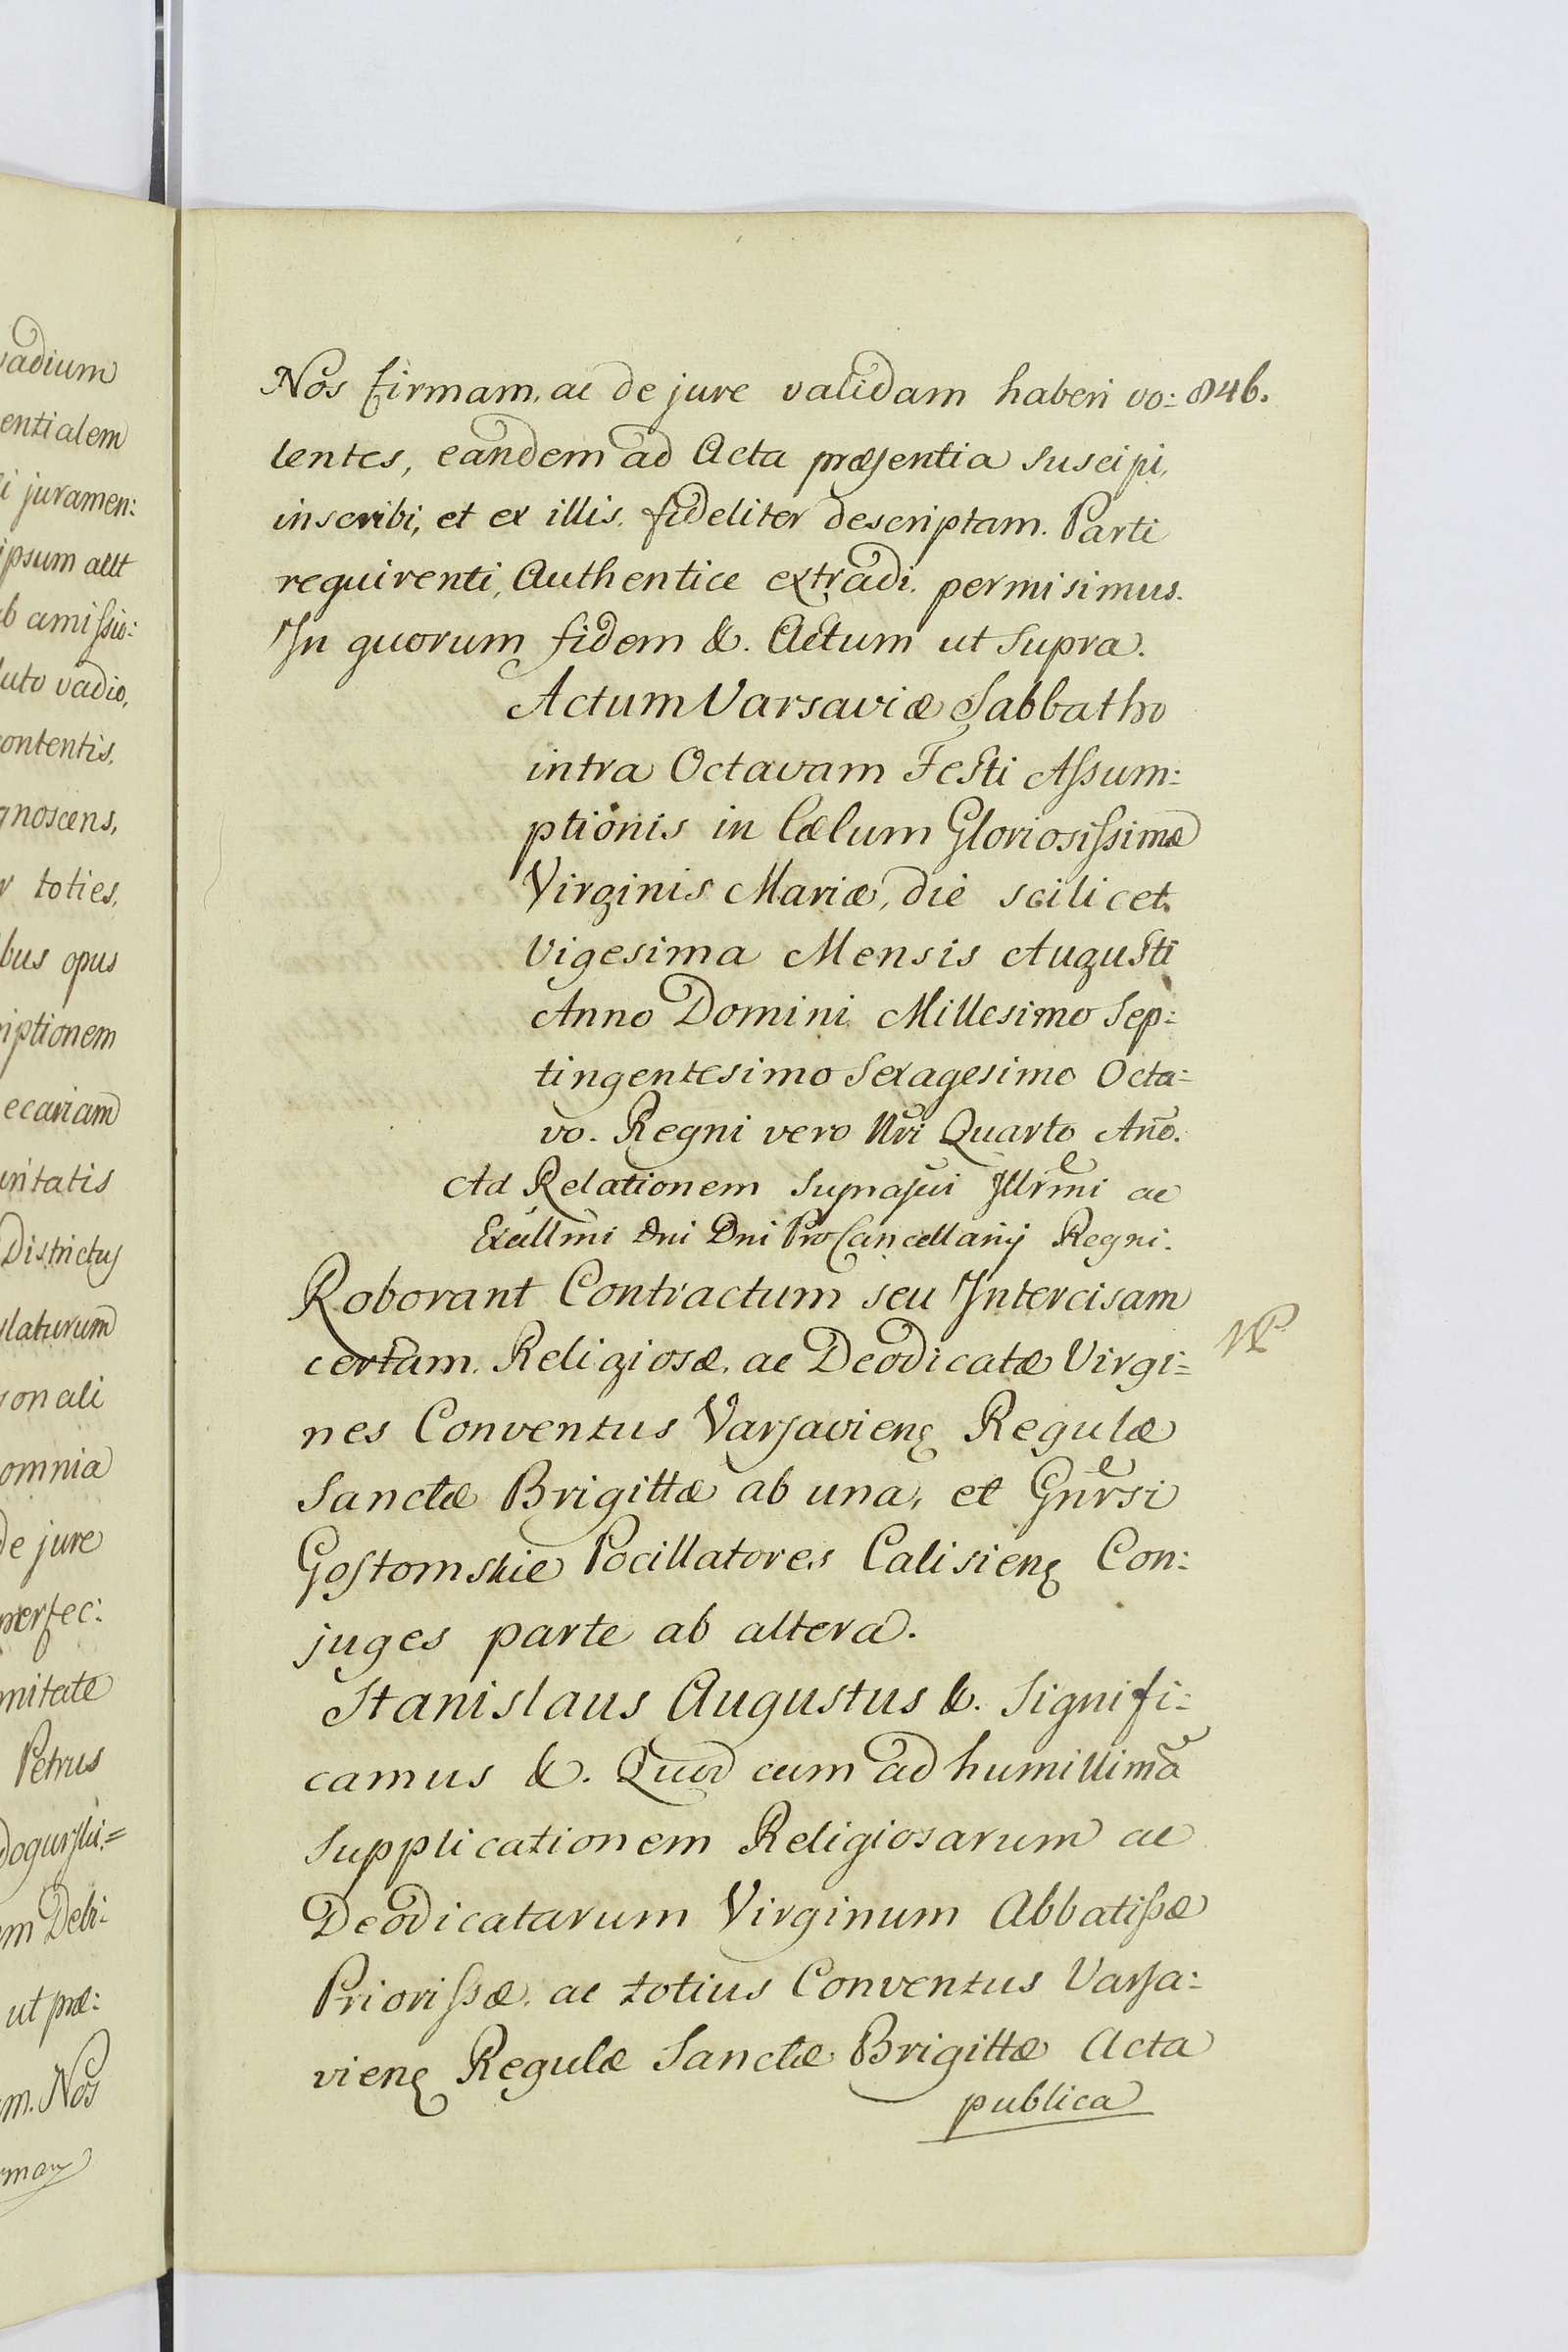 vadium
entialem
i juramen:
ipsum allt
b amissio:
luto vadio,
contentis,
gnoscens,
r toties,
bus opus
riptionem
ecariam
uritatis
Districtus
ulaturum
sonali
omnia
de jure
perfec:
mitate
Petrus
dogurski=
em Debi:
ut præ:
m. Nos
Nos firmam, ac de jure validam haberi vo: 846.
lentes, eandem ad Acta præsentia suscipi,
inscribi, et ex illis, fideliter descriptam. Parti
requirenti, Authentice extradi, permisimus.
In quorum fidem &. Actum ut supra.
Actum Varsaviæ Sabbatho
intra Octavam Festi Assum:
ptionis in Cælum Gloriosissimæ
Virginis Mariæ, die scilicet
Vigesima Mensis Augusti
Anno Domini Millesimo Sep:
tingentesimo Sexagesimo Octa=
vo. Regni vero Nri Quarto Año.
Ad Relationem suprascri Illrmi ac
Excllmi Dni Dni ProCancellarij Regni.
Roborant Contractum seu Intercisam
certam. Religiosæ, ac Deodicatæ Virgi=
nes Conventus Varsavien̨ Regulæ
Sanctæ Brigittæ ab una, et Gnrsi
Gostomskie Pocillatores Calisien̨ Con:
juges parte ab altera.
Stanislaus Augustus &. Signifi=
camus &. Quod cum ad humillimã
supplicationem Religiosarum ac
Deodicatarum Virginum Abbatissæ
Priorissæ, ac totius Conventus Varsa:
vien̨ Regulæ Sanctæ Brigittæ Acta
publica